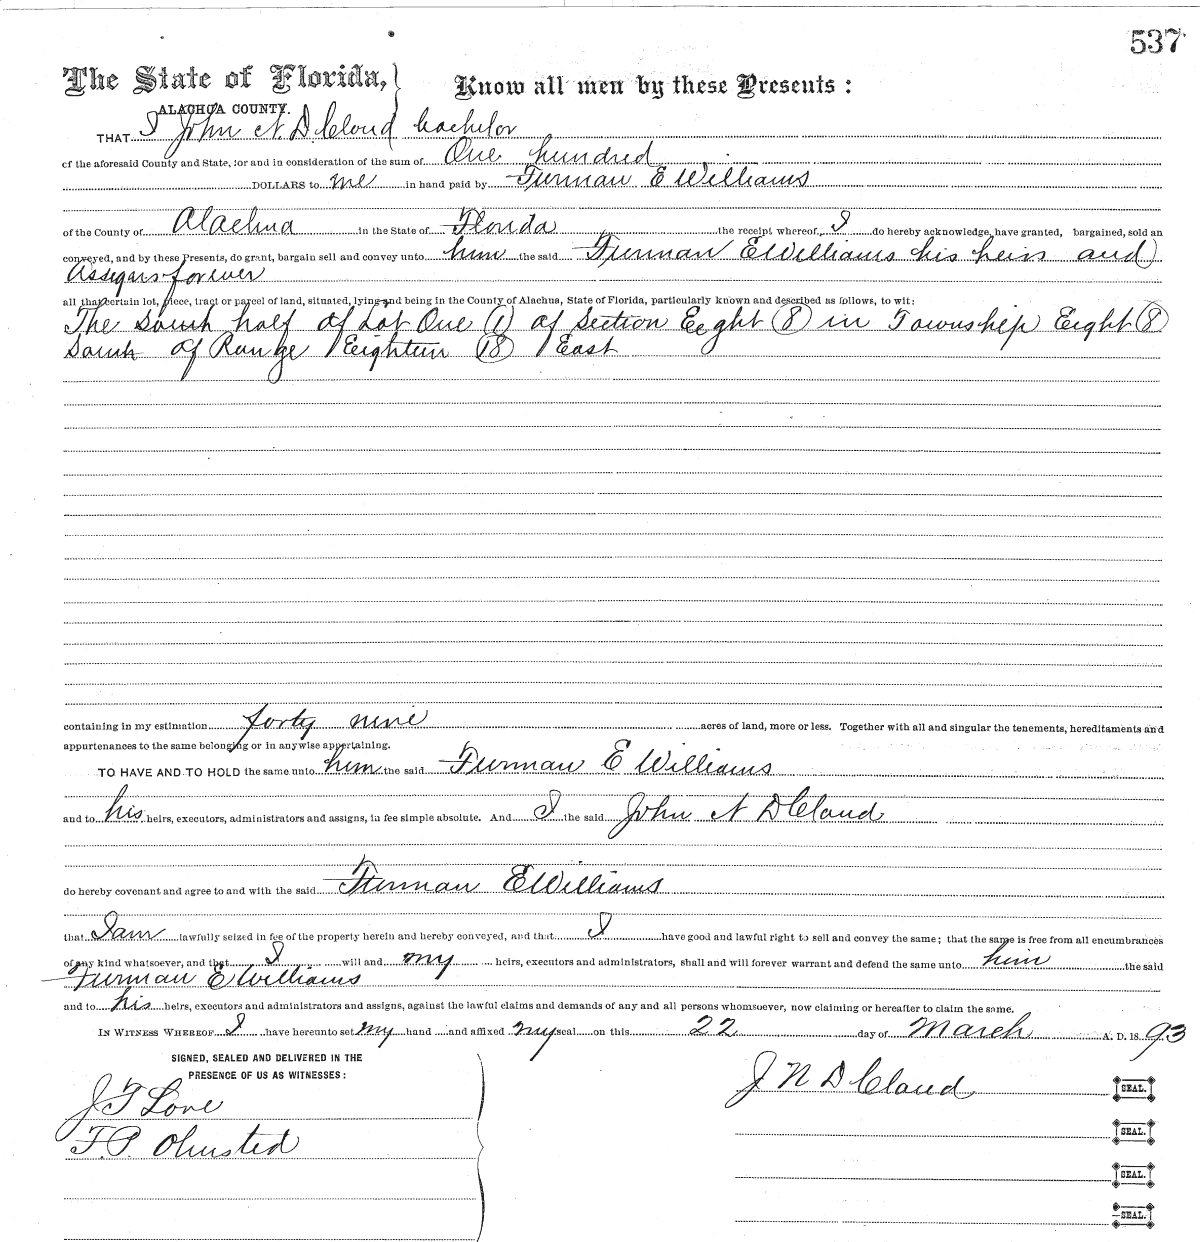 537
The State of Florida,
Know all men by these Presents :
ALACHUA COUNTY.
THAT I John N D Cloud bachelor
of the aforesaid County and State, for and in consideration of the sum of One hundred
DOLLARS to me in hand paid by Furman E Williams
of the County of Alachua in the State of Florida the receipt whereof, I do hereby acknowledge, have granted, bargained, sold an
conveyed, and by these Presents, do grant, bargain sell and convey unto him the said Furman E Williams his heirs and
Assigns forever
all that certain lot, piece, tract or parcel of land, situated, lying and being in the County of Alachua, State of Florida, particularly known and described as follows, to wit:
The South half of Lot One (1) of Section Eeght (8) in Township Eight (8
South of Range Eighteen (18) East
containing in my estimation forty nine acres of land, more or less. Together with all and singular the tenements, hereditaments and
appurtenances to the same belonging or in anywise appertaining.
TO HAVE AND TO HOLD the same unto him the said Furman E Williams
and to his heirs, executors, administrators and assigns, in fee simple absolute. And I the said John N D Cloud
do hereby covenant and agree to and with the said Furman E Williams
that I am lawfully seized in fee of the property herein and hereby conveyed, and that I have good and lawful right to sell and convey the same; that the same is free from all encumbrances
of any kind whatsoever, and that I will and my heirs, executors and administrators, shall and will forever warrant and defend the same unto him the said
Furman E Williams
and to his heirs, executors and administrators and assigns, against the lawful claims and demands of any and all persons whomsoever, now claiming or hereafter to claim the same.
IN WITNESS WHEREOF I have hereunto set my hand and affixed my seal on this 22 day of March A. D. 1893
SIGNED, SEALED AND DELIVERED IN THE
PRESENCE OF US AS WITNESSES :
J N D Cloud SEAL.
J F Lone
SEAL.
F. P. Olmsted
SEAL.
SEAL.